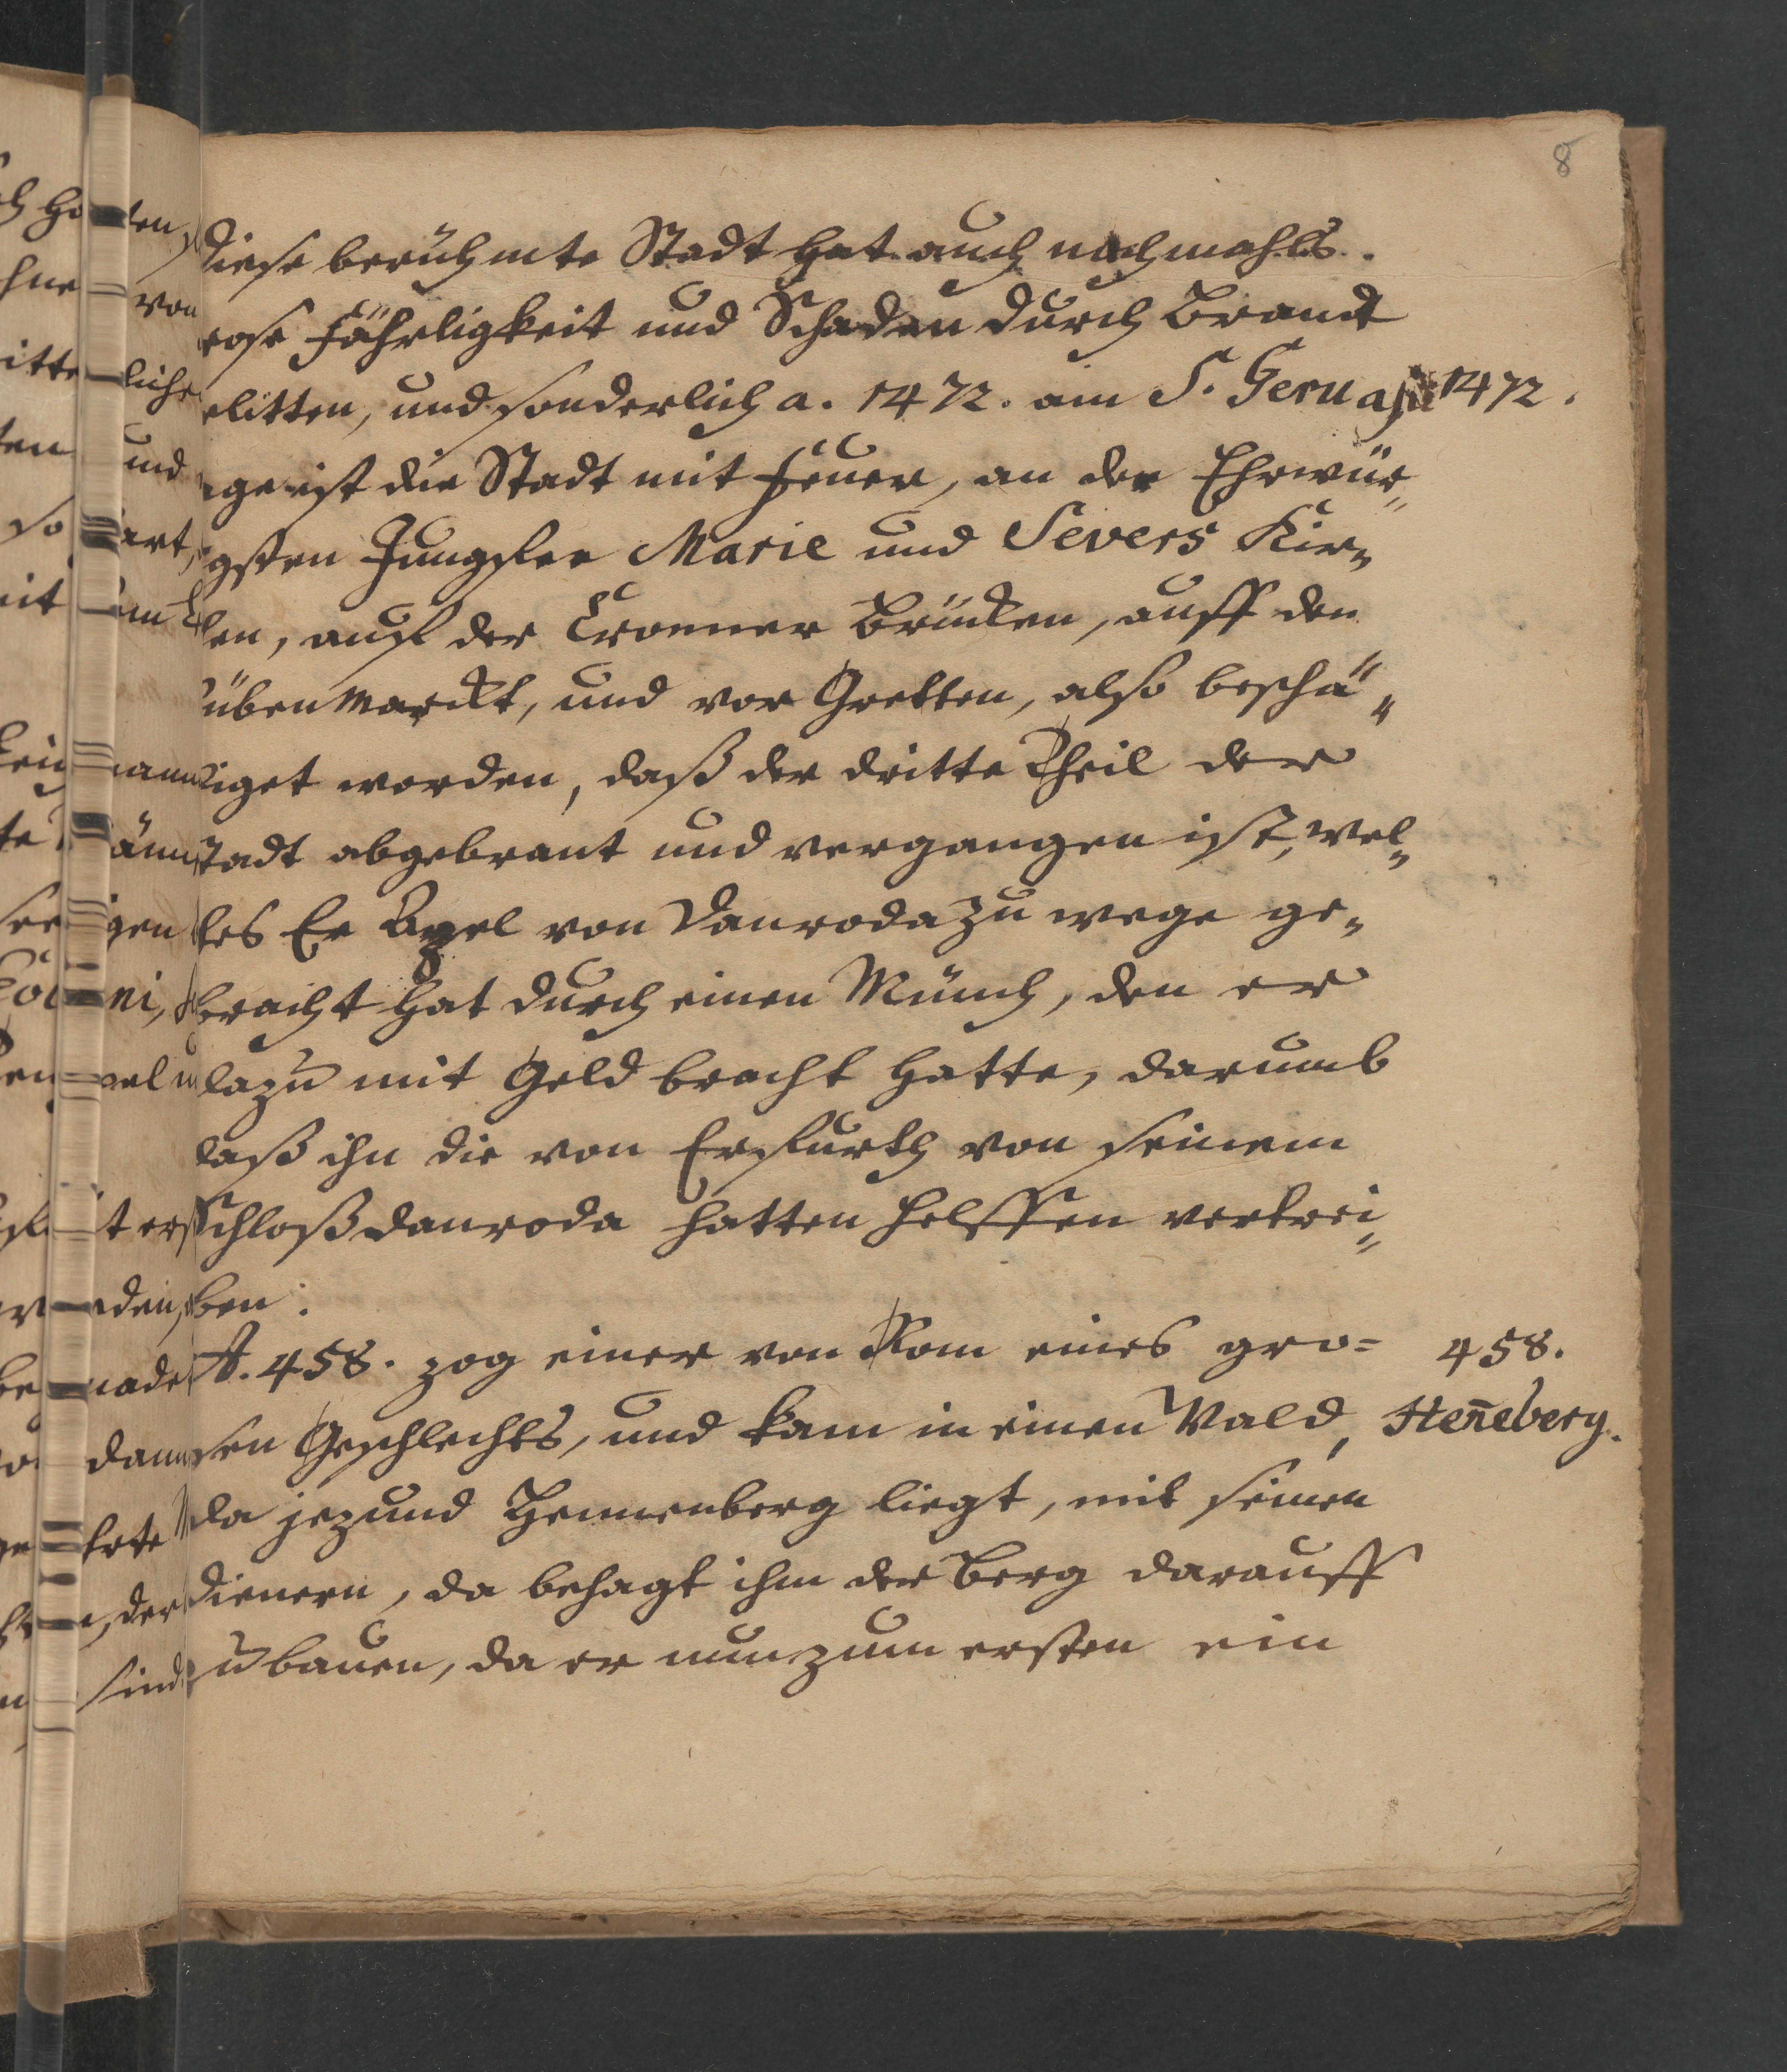 8
Diese berühmte Stadt hat auch nachmahls
rose Fährligkeit und Schaden durch Brandt
elitten, und sonderlich a. 1472. am S. Geruasii 1472.
age ist die Stadt mit feuer, an der Ehrwür„
gsten Jungfer Marie und Severs Kir„
en, auf der Cromer Brücken, auff den
üben Marckt, und vor Gretten, also beschä„
iget worden, daß der dritte Theil der
Stadt abgebrant und vergangen ist, wel„
es Er Apel von Danroda zu wege ge„
bracht hat durch einen Münch, den er
dazu mit Geld bracht hatte, darumb
daß ihn die von Erffurth von seinem
Schloß danroda hatten helffen vertrei„
ben.
A. 458. zog einer von Rom eines gro= 458.
sen Geschlechts, und kam in einen Wald, Hen̄eberg.
da jezund Hennenberg liegt, mit seinen
Dienern, da behagt ihm der Berg darauff
zu bauen, da er nun zum ersten ein